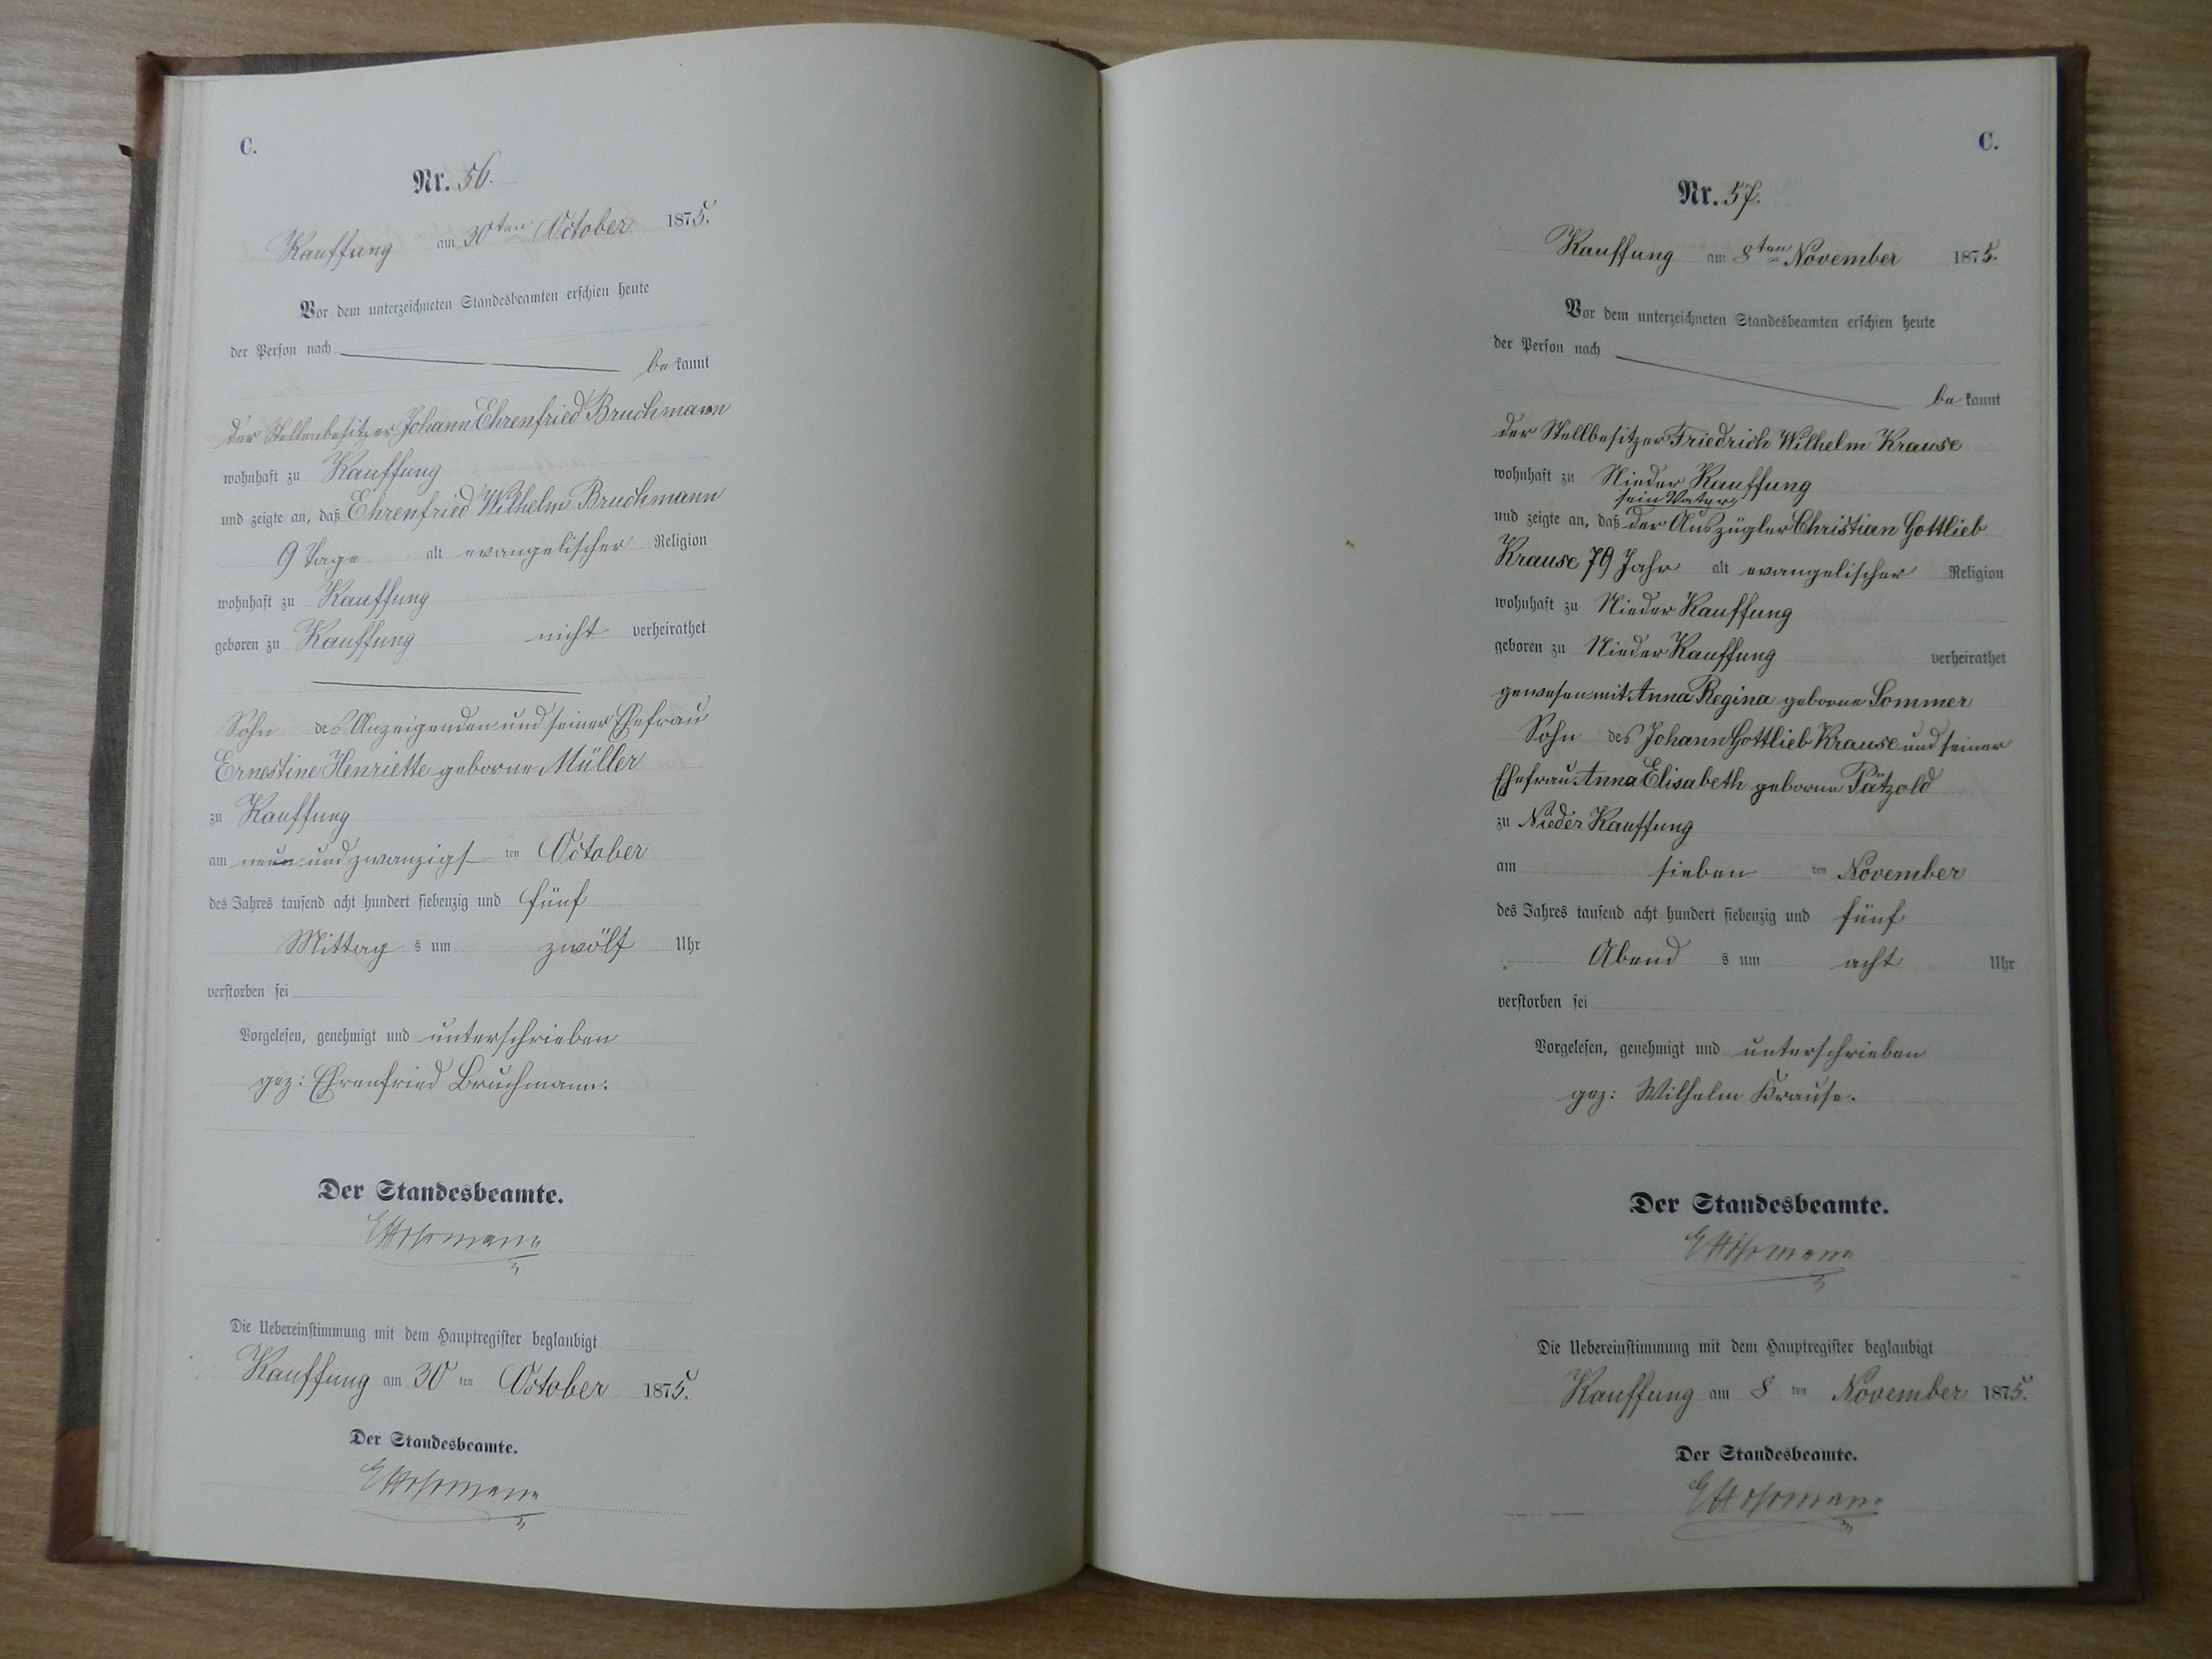 C.
Nr. 56.
Kauffung am 30ten October 1875.
Vor dem unterzeichneten Standesbeamten erschien heute
der Person nach
bekannt
der Stellenbesitzer Johann Ehrenfried Bruchmann
wohnhaft zu Kauffung
und zeigte an, daß Ehrenfried Wilhelm Bruchmann
9 Tage alt evangelischer Religion
wohnhaft zu Kauffung
geboren zu Kauffung nicht verheirathet
Sohn des Anzeigenden und seiner Ehefrau
Ernestine Henriette geborne Müller
zu Kauffung
am neun und zwanzigsten October
des Jahres tausend acht hundert siebenzig und fünf
Mittags um zwölf Uhr
verstorben sei
Vorgelesen, genehmigt und unterschrieben
gez: Ehrenfried Bruchmann.
Der Standesbeamte.
Die Uebereinstimmung mit dem Hauptregister beglaubigt
Kauffung am 30ten October 1875.
Der Standesbeamte.
C.
Nr. 57.
Kauffung am 8ten November 1875.
Vor dem unterzeichneten Standesbeamten erschien heute
der Person nach
bekannt
der Stellbesitzer Friedrich Wilhelm Krause
wohnhaft zu Nieder Kauffung
sein Vater
und zeigte an, daß der Auszügler Christian Gottlieb
Krause 79 Jahr alt evangelischer Religion
wohnhaft zu Nieder Kauffung
geboren zu Nieder Kauffung verheirathet
gewesen mit Anna Regina geborne Sommer
Sohn des Johann Gottlieb Krause und seiner
Ehefrau Anna Elisabeth geborne Pätzold
zu Nieder Kauffung
am siebenten November
des Jahres tausend acht hundert siebenzig und fünf
Abends um acht Uhr
verstorben sei
Vorgelesen, genehmigt und unterschrieben
gez: Wilhelm Krause.
Der Standesbeamte.
Die Uebereinstimmung mit dem Hauptregister beglaubigt
Kauffung am 8ten November 1875.
Der Standesbeamte.